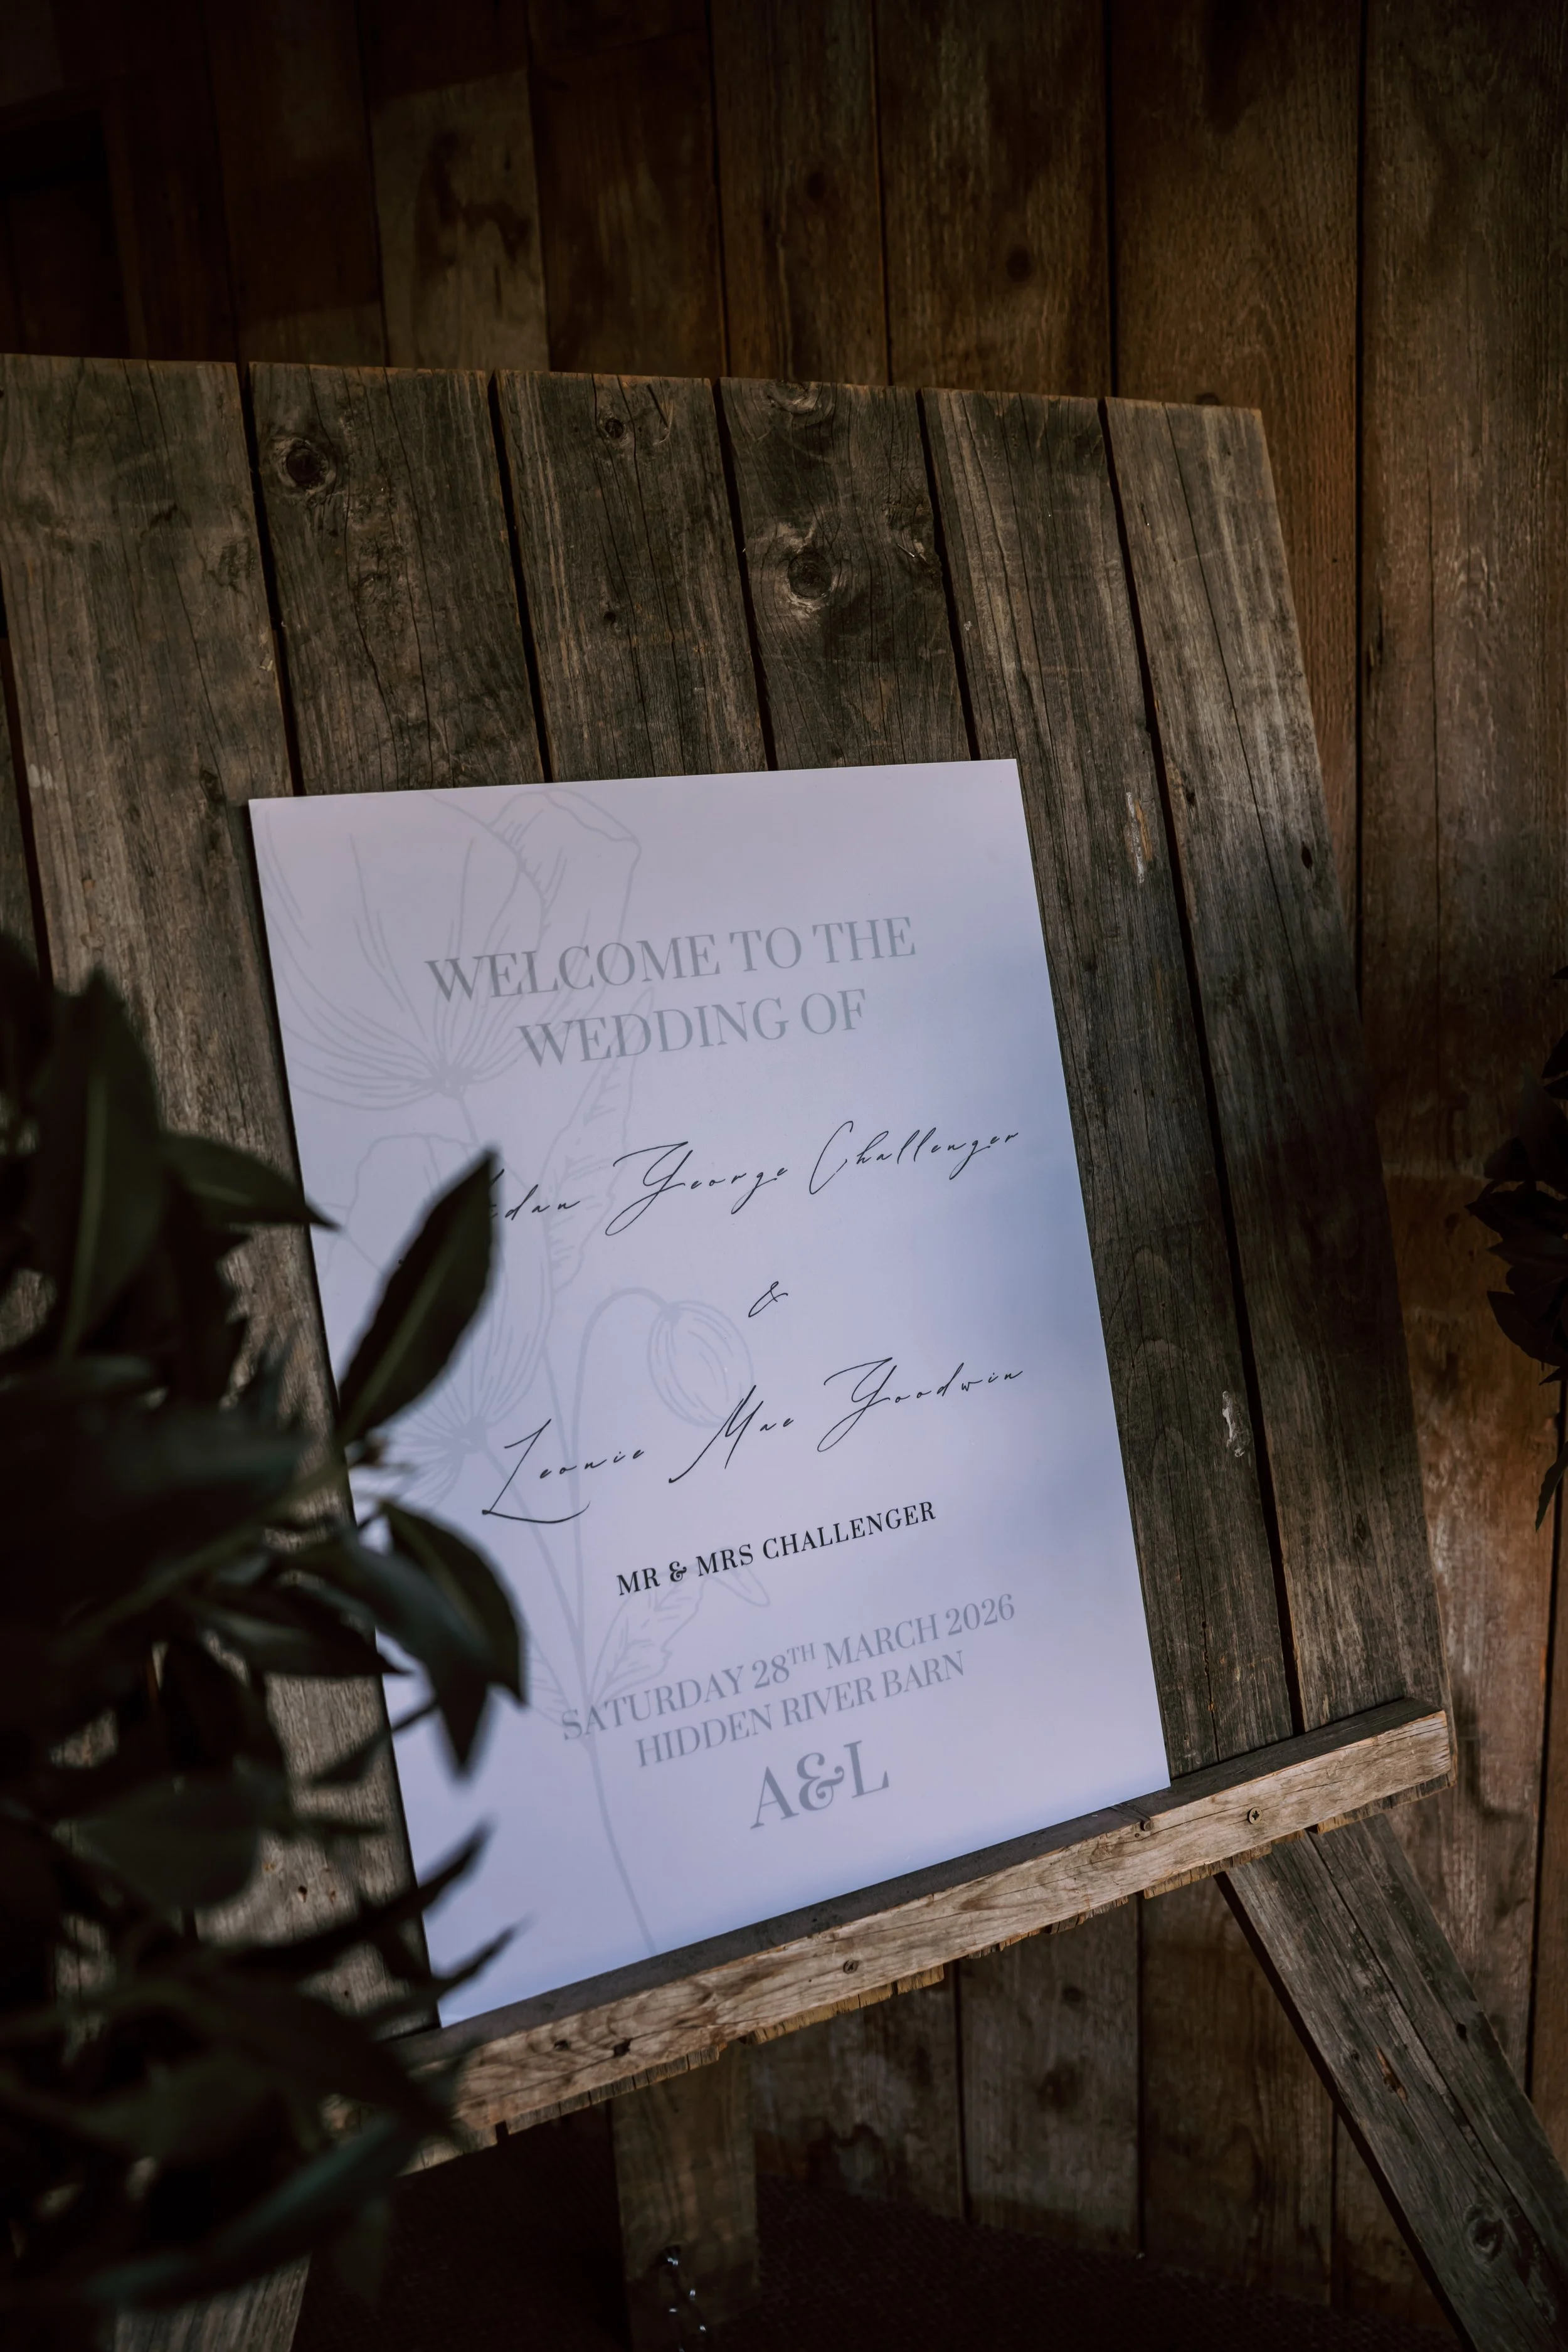 WELCOME TO THE
WEDDING OF
George Challenger
&
Leonie Mae Goodwin
MR & MRS CHALLENGER
SATURDAY 28TH MARCH 2026
HIDDEN RIVER BARN
A&L